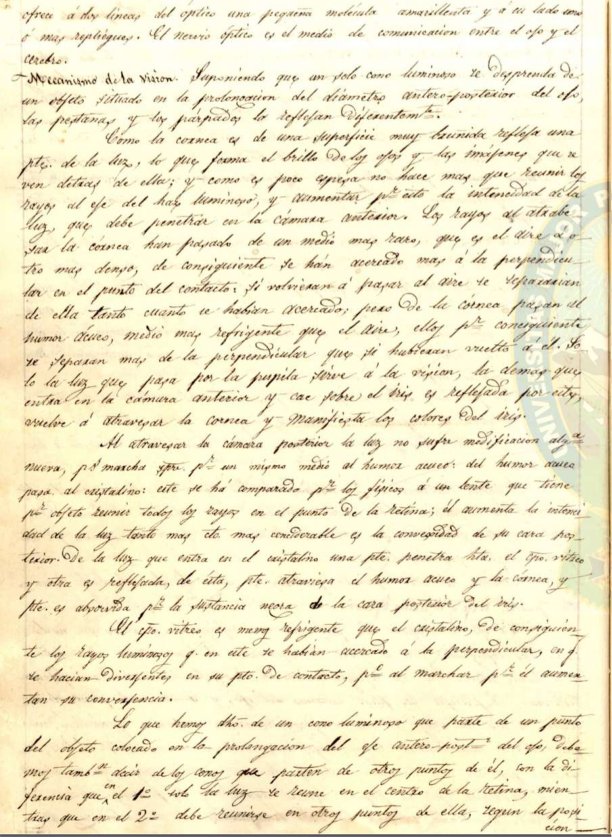 ofrece á dos lineas del óptico una pequeña molécula amarillenta y á su lado uno
ó mas repliegues. El nervio óptico es el medio de comunicacion entre el ojo y el
cerebro.
Mecanismo de la vision. Suponiendo que un solo cono luminoso se desprenda de
un objeto situado en la prolongacion del diametro antero-posterior del ojo,
las pestañas y los parpados la reflejan diferentemte.
Como la cornea es de una superficie muy bruñida refleja una
pte. de la luz, lo que forma el brillo de los ojos y las imágenes que se
ven detras de ella; y como es poco espesa no hace mas que reunir los
rayos al eje del haz luminoso, y aumentar pr. esto la intencidad de la
luz, que debe penetrar en la cámara anterior. Los rayos al atrabe-
sar la cornea han pasado de un medio mas raro, que es el aire á o-
tro mas denso, de consiguiente se hán acercado mas á la perpendicu-
lar en el punto del contacto; si volvieran á pasar al aire se separarian
de ella tanto cuanto se habian acercado; pero de la cornea pasan al
humor acueo, medio mas refrigente que el aire, ellos pr. consiguiente
se separan mas de la perpendicular que si hubieran vuelto á él. So-
lo la luz que pasa por la pupila sirve á la vision, la demas que
entra en la cámara anterior y cae sobre el iris es reflejada por este,
vuelve á atravesar la cornea y manifiesta los colores del iris.
Al atravesar la cámara posterior la luz no sufre modificacion alga.
nueva, ps. marcha spre. pr. un mismo medio al humor acueo: del humor acueo
pasa al cristalino: este se há comparado pr. los físicos á un lente que tiene
pr. objeto reunir todos los rayos en el punto de la retina; él aumenta la intenci
dad de la luz tanto mas cto. mas considerable es la convexidad de su cara pos-
terior. De la luz que entra en el cristalino una pte. penetra hta. el cpo. vitreo
y otra es reflejada, de esta, pte. atraviesa el humor acueo y la cornea, y
pte. es absorvida pr. la sustancia negra de la cara posterior del iris.
El cpo. vitreo es menos refrigente que el cristalino, de consiguien-
te los rayos luminosos q. en este se habian acercado á la perpendicular, en q.
se hacian divergentes en su pto. de contacto, po. al marchar pr. él aumen-
tan su convergencia.
Lo que hemos dho. de un cono luminoso que parte de un punto
del objeto colocado en la prolongacion del eje antero-postr. del ojo, debe
mos tambn. decir de los conos que parten de otros puntos de él, con la di-
ferencia que en el 1º solo la luz se reune en el centro de la retina, mien-
tras que en el 2º debe reunirse en otros puntos de ella, segun la posi-
cion